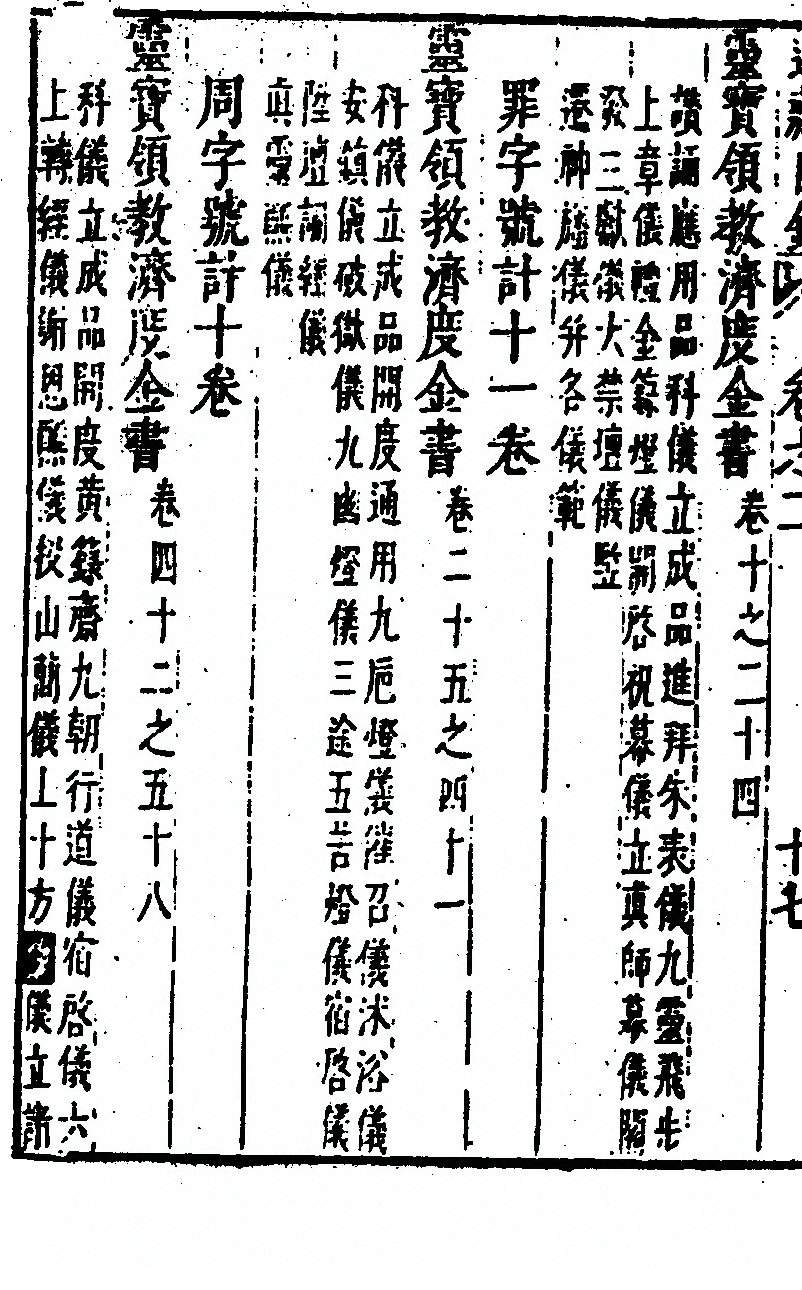 靈寶領教濟度金書 卷十之二十四
讚誦應用品科儀立成品進拜朱表儀九靈飛步
上章儀禮金籙燈儀開啓祝幕儀立真師幕儀關
發三獻儀大禁壇儀監
還神燈儀并各儀範
罪字號計十一卷
靈寶領教濟度金書 卷二十五之四十一
科儀立成品開度通用九巵燈儀催召儀沐浴儀
安鎮儀破獄儀九幽燈儀三途五苦燈儀宿啓儀
陞壇誦經儀
真靈醮儀
周字號計十卷
靈寶領教濟度金書 卷四十二之五十八
科儀立成品開度黃籙齋九朝行道儀宿啓儀六
上轉經儀謝恩醮儀投山簡儀上十方儀立諸